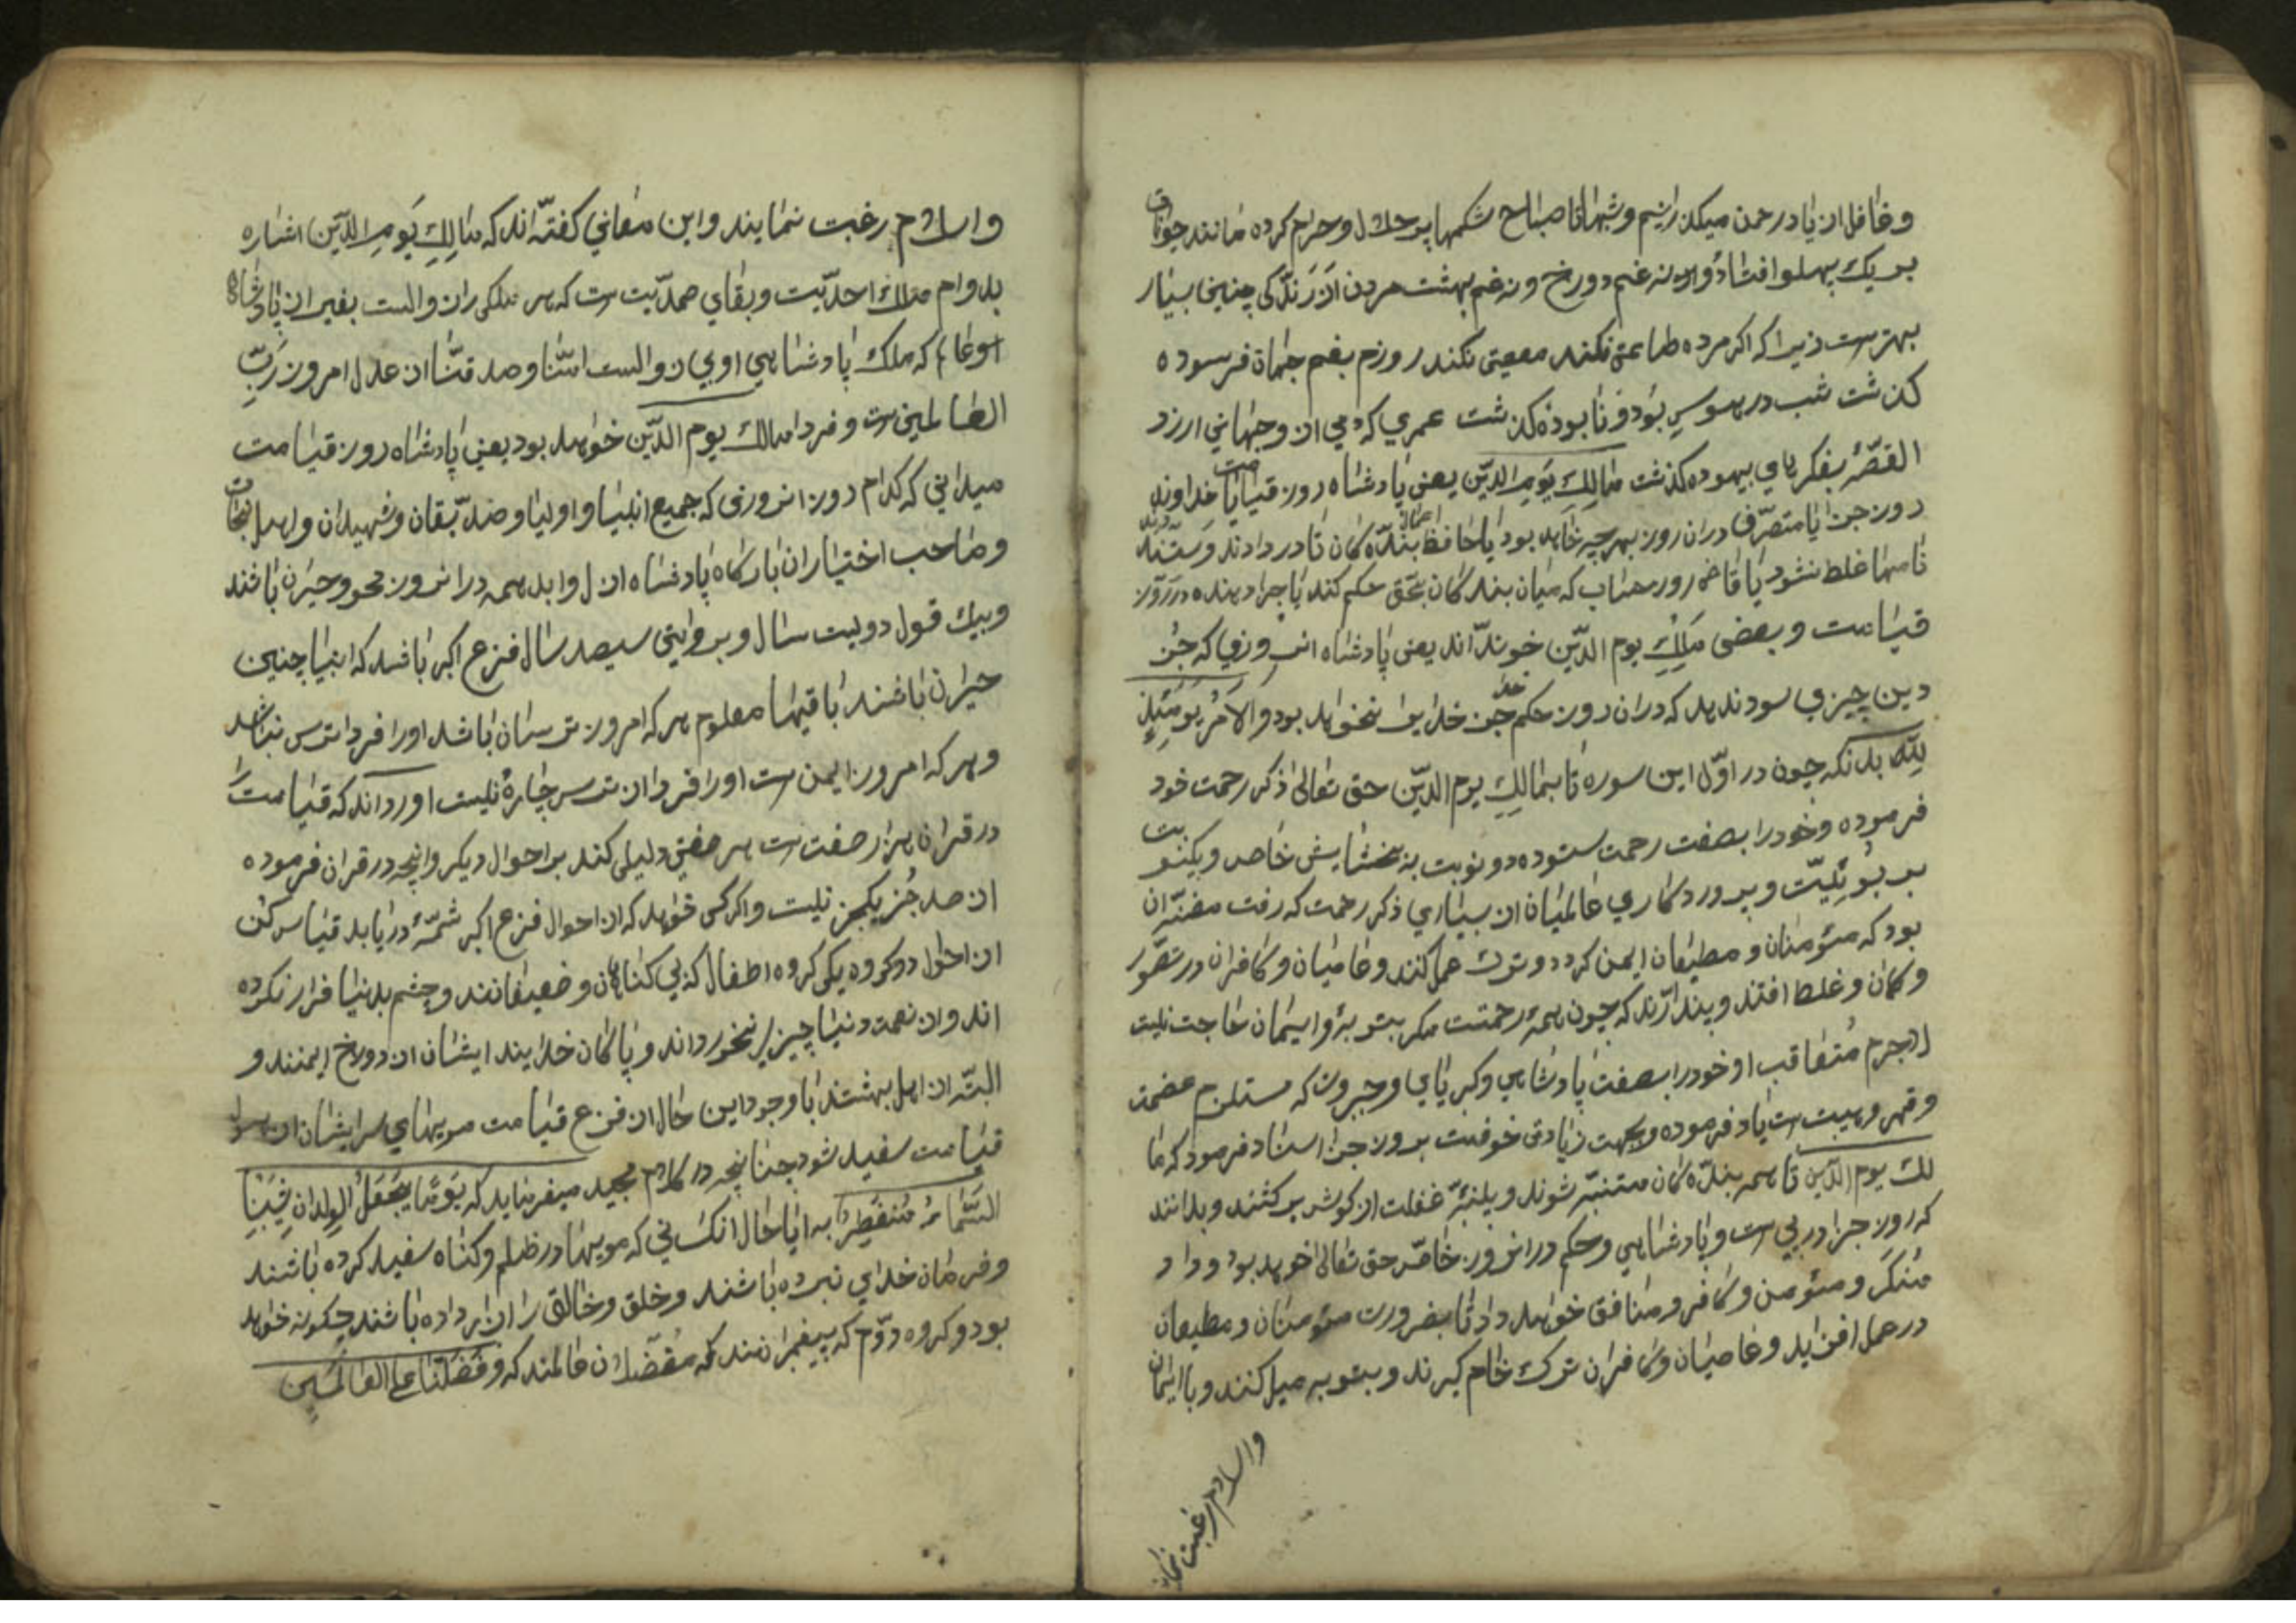 وغافل از یاد رحمن میکذرانیم وشبها تا صباح شکمها پر حلال وحرام کرده مانند حیوانات
بر یک پهلو افتاده نه غم دوزخ ونه غم بهشت مردن از زندکی چنین بسیار
بهترست زیرا که اکر مرده طاعتی نکند معصیتی نکند روزم بغم جهان فرسوده
کذشت شب در هوس بوده نابوده کذشت عمری که دمی ازو جهانی ارزد
القصّه بفکرهای بیهوده کذشت مَالِكِ يَوْمِ الدّين یعنی پادشاه روز قیامت یا خداوند
روز جزا یا متصرّف دران روز بهرچه خاهد بود یا حافظ اعمال بندّه کان تا در دادند وستدند
نامها غلط نشود یا قاضی روز حساب که میان بندکان بحق حکم کند یا جزا دهنده در روز
قیامت وبعضی مَلِكِ یوم الدّین خوندّاند یعنی پادشاه انروزی که جز
دین چیزی سود ندهد که دران روز حکم جز خدایرا نخواهد بود والامر يومئذ
لله بدانکه چون در اوّل این سوره تا بمالك یوم الدّین حق تعالی ذکر رحمت خود
فرموده وخودرا بصفت رحمت ستوده دو نوبت به بخشایش خاص ویکنوبت
بربوبیّت وپروردکاری عالمیان از بسیاری ذکر رحمت که رفت مضنّه ان
بود که مئومنان ومطیعان ایمن کردد وترك عمل کنند وعاصیان وکافران در تصوّر
وکمان وغلط افتند وپندارّند که چون همه رحمتست مکر بتوبه وایمان حاجت نیست
لاجرم مُتعاقب او خودرا بصفت پادشاهی وکبریای وجبروت که مستلزم عضمت
وقهر وهیبت ست یاد فرموده وبجهت زیادتی خوفست بروز جزا اسناد فرمود که ما
لك یوم الدّین تا همه بندّه کان متنبّه شوند وپنبّه غفلت از کوش برکشند وبدانند
که روز جزا در پی ست وپادشاهی وحکم در انروز خاصّه حق تعالی خوهد بود وداد
مُنکر ومئومن وکافر ومنافق خوهد داد تا بضرورت مئومنان ومطیعان
در عمل افزاید وعاصیان وکافران ترك خام کیرند وبتوبه میل کنند وبا ایمان
والسلام رغبت نمایند
واسلام رغبت نمایند واین معانی کفتّه اند که مَالِكِ يَوْمِ الدّين اشاره
بدوام ملك احدیّت وبقای صمدیّت ست که هر ملکی را زوالست بغیر از پادشاه
که ملك پادشاهی اوبی زوالست امنّا وصدقنّا ان عدل امروز رَبّ
العالمین ست وفردا مالك یوم الدّین خواهد بود یعنی پادشاه روز قیامت
میدانی که کدام روز انروزی که جمیع انبیا واولیا وصدّیقان وشهیدان واهل نجات
وصاحب اختیاران بارکاه پادشاه ازل وابد همه درانروز محو وحیران باشند
وبیك قول دویست سال وبروایتی سیصد سال فزع اکبر باشد که انبیا چنین
حیران باشند باقیها معلوم هرکه امروز ترسان باشد اورا فردا ترس نباشد
وهرکه امروز ایمن ست اورا فردا از ترس چارهٔ نیست اورداند که قیامت را
در قران هزار صفت ست هر صفتی دلیلی کند بر احوال دیکر وانچه در قران فرموده
از صد جُز یکجز نیست واکر کسی خواهد که از احوال فزع اکبر شمّهٔ دریابد قیاس کن
از احوال دو کروه یکی کروه اطفال که بی کناهان وضعیفانند وچشم بدنیا فراز نکرده
اند واز نعمت دنیا چیزی نخورداند وپاکان خدایند ایشان از دوزخ ایمنند و
البتّه از اهل بهشتند با وجود این حال از فزع قیامت مویهای سر ایشان از هول
قیامت سفید شود چنانچه در کلام مجید میفرماید که يَوْمًا يَجْعَلُ الوِلدَانِ شِيبًا
السَّمَاءُ مُنفَطِرٌ بِهِ ایا حال انکسانی که مویها در ظلم وکناه سفید کرده باشند
وفرمان خدای نبرده باشند وخلق وخالق را ازار داده باشند چکونه خواهد
بود وکروه دوّم که پیغمبرانند که مُفضّلان عالمند که وفضّلنا علی العالمین